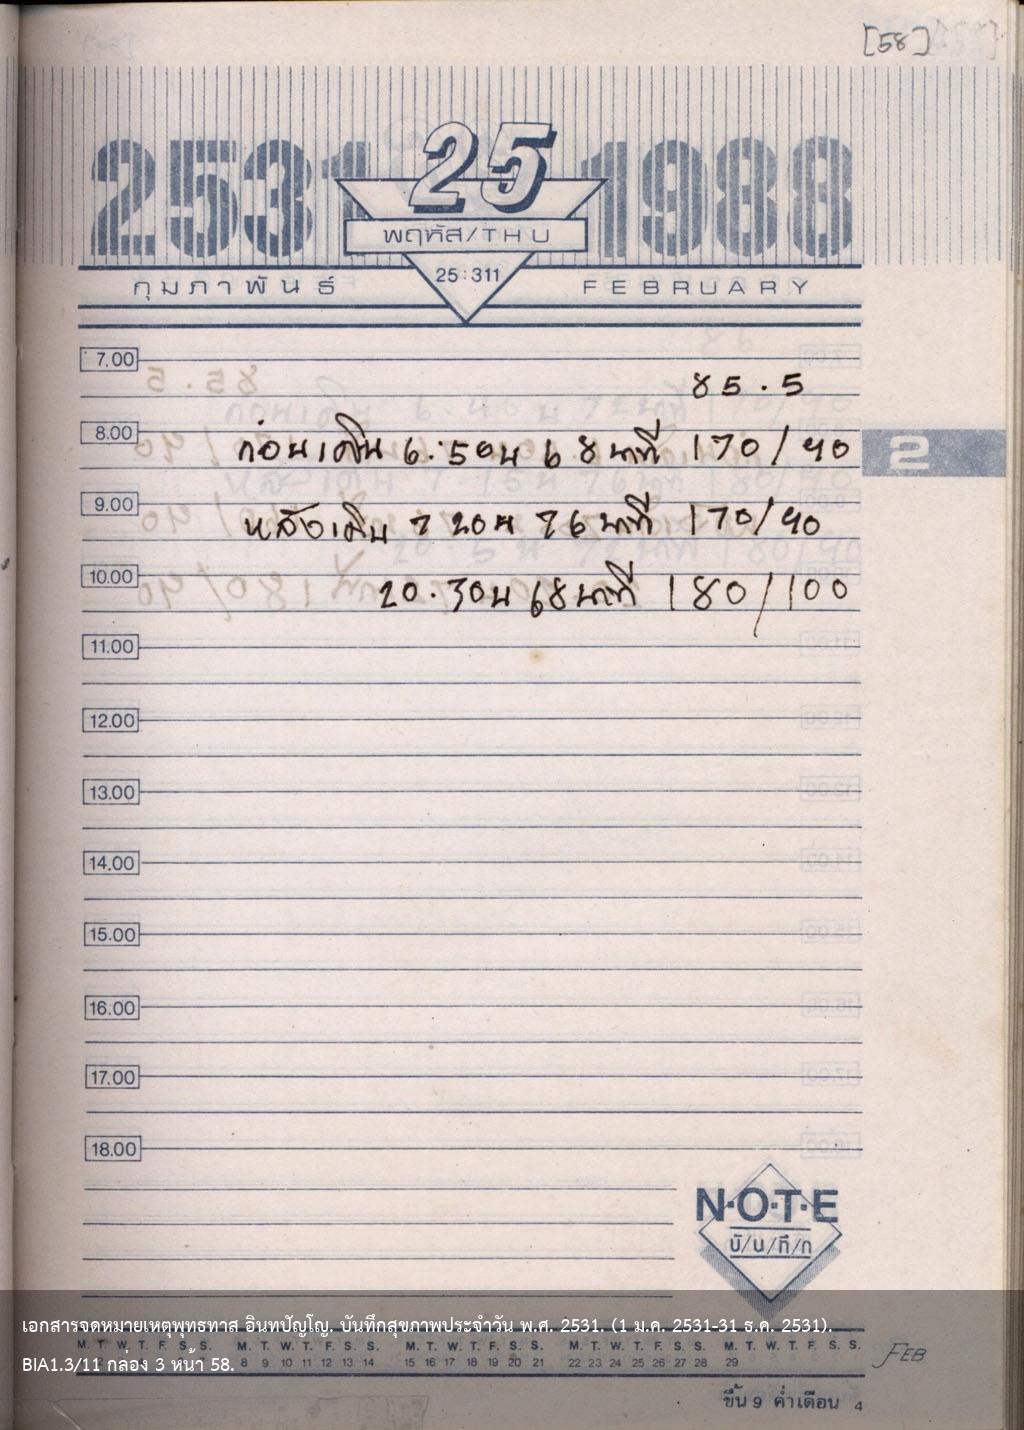 [58]
2531 25 1988
พฤหัส/THU
25:311
กุมภาพันธ์ FEBRUARY
7.00
85.5
8.00
ก่อนเดิน 6.50น 68 นาที 170/90
2
9.00
หลังเดิน 7 20น 76 นาที 170/90
10.00
20.30น 68 นาที 180/100
11.00
12.00
13.00
14.00
15.00
16.00
17.00
18.00
N·O·T·E
บั/น/ทึ/ก
เอกสารจดหมายเหตุพุทธทาส อินทปัญโญ. บันทึกสุขภาพประจำวัน พ.ศ. 2531. (1 ม.ค. 2531-31 ธ.ค. 2531).
M. T. W. T. F. S. S. M. T. W. T. F. S. S. M. T. W. T. F. S. S. M. T. W. T. F. S. S. M. T. W. T. F. S. S.
BIA1.3/11 กล่อง 3 หน้า 58.
8 9 10 11 12 13 14 15 16 17 18 19 20 21 22 23 24 25 26 27 28 29
FEB
ขึ้น 9 ค่ำ เดือน 4